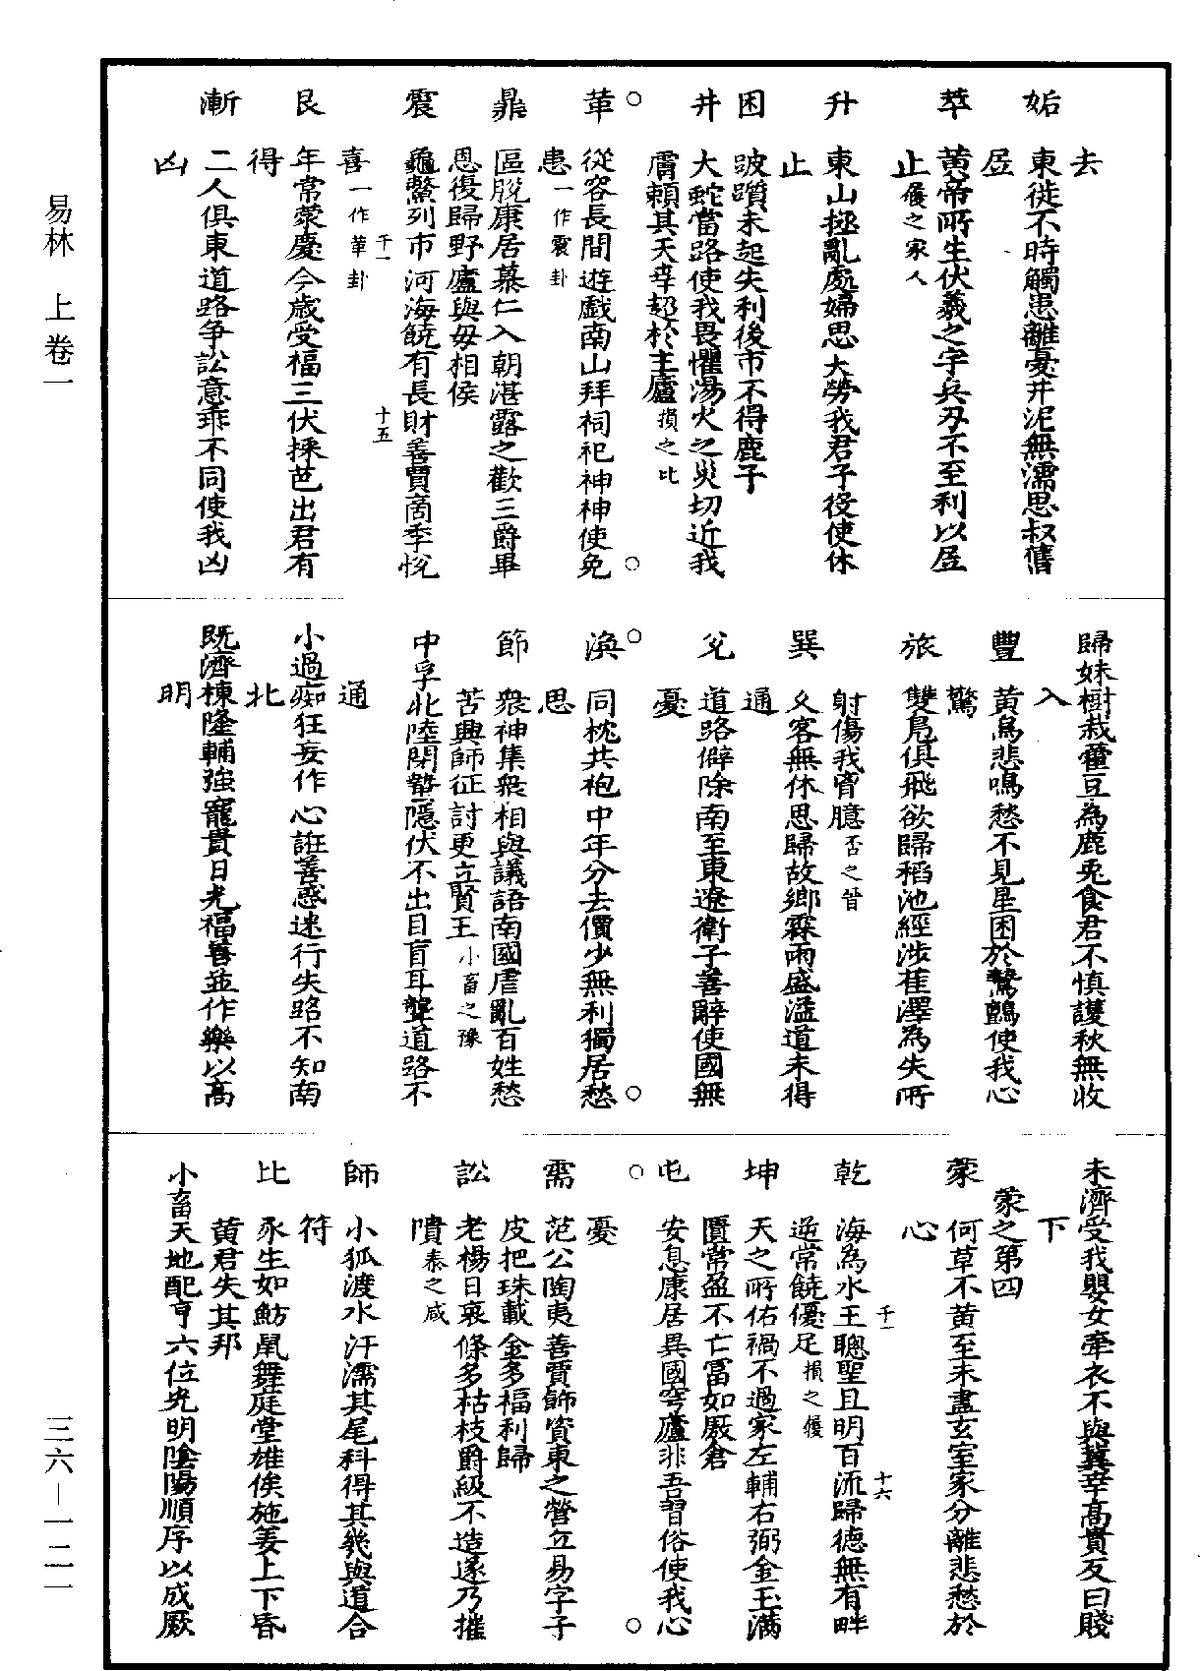 去
姤　東徙不時觸患離憂井泥無濡思叔舊
居
萃　黃帝所生伏羲之宇兵刃不至利以居
止履之家人
升　東山拯亂處婦思夫勞我君子役使休
止
困　跛躓未起失利後市不得鹿子
井　大蛇當路使我畏懼湯火之災切近我
膚賴其天幸趨於王廬損之比
○　○
革　從容長閒遊戲南山拜祠祀神神使免
患一作震卦
鼎　區脫康居慕仁入朝湛露之歡三爵畢
恩復歸野廬與母相侯
震　龜鱉列市河海饒有長財善賈商季悅
喜一作革卦
千一　十五
艮　年常蒙慶今歲受福三伏採芭出君有
得
漸　二人俱東道路爭訟意乖不同使我凶
凶
歸妹樹栽藿豆為鹿兎食君不慎護秋無收
入
豐　黃鳥悲鳴愁不見星困於鷙鸇使我心
驚
旅　雙鳧俱飛欲歸稻池經涉萑澤為矢所
射傷我胷臆否之晉
巽　久客無休思歸故鄉霖雨盛溢道未得
通
兌　道路僻除南至東遼衛子善辭使國無
憂
○　○
渙　同枕共袍中年分去價少無利獨居愁
思
節　衆神集聚相與議語南國虐亂百姓愁
苦興師征討更立賢王小畜之豫
中孚北陸閉蟄隱伏不出目盲耳聾道路不
通
小過痴狂妄作心誑善惑迷行失路不知南
北
既濟棟隆輔強寵貴日光福善並作樂以高
明
未濟受我嬰女牽衣不與冀幸高貴反曰賤
下
蒙之第四
蒙　何草不黃至未盡玄室家分離悲愁於
心
乾　海為水王聰聖且明百流歸德無有畔
逆常饒優足損之履
千一　十六
坤　天之所佑禍不過家左輔右弼金玉滿
匱常盈不亡富如厫倉
屯　安息康居異國穹廬非吾習俗使我心
憂
○　○
需　范公陶夷善賈飾資東之營丘易字子
皮把珠載金多福利歸
訟　老楊日衰條多枯枝爵級不造遂乃摧
隤泰之咸
師　小狐渡水汙濡其尾科得其幾與道合
符
比　豕生如魴鼠舞庭堂雄俟施姜上下昏
黃君失其邦
小畜天地配亨六位光明陰陽順序以成厥
易林　上卷一　三六—一二一